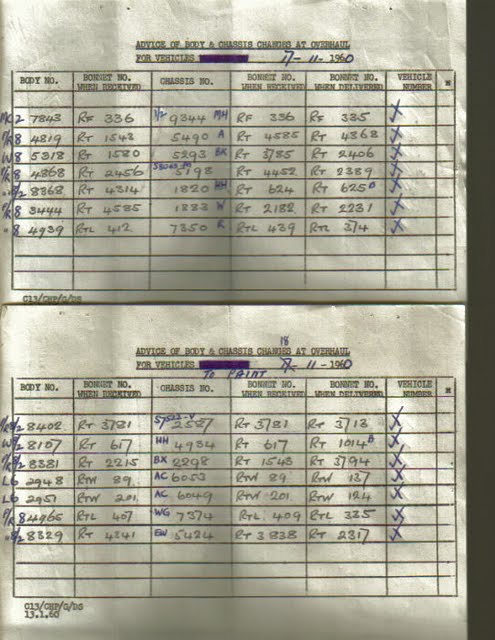 ADVICE OF BODY & CHASSIS CHANGES AT OVERHAUL
FOR VEHICLES 17-11-1960
BODY NO. BONNET NO. WHEN RECEIVED CHASSIS NO. BONNET NO. WHEN RECEIVED BONNET NO. WHEN DELIVERED VEHICLE NUMBER
2 7843 RF 336 1/2 9344 MH RF 336 RF 335 X
8 4819 RT 1543 5490 A RT 4585 RT 4368 X
W8 5318 RT 1580 5293 BX RT 3785 RT 2406 X
8 4868 RT 2456 5198 RT 4452 RT 2389 X
8/2 8368 RT 4314 1820 HH RT 624 RT 625 B X
8 3444 RT 4585 1833 W RT 2182 RT 2231 X
8 4939 RTL 412 7350 R RTL 439 RTL 374 X
C13/CHP/G/DS
ADVICE OF BODY & CHASSIS CHANGES AT OVERHAUL
FOR VEHICLES TO PAINT 18-11-1960
BODY NO. BONNET NO. WHEN RECEIVED CHASSIS NO. BONNET NO. WHEN RECEIVED BONNET NO. WHEN DELIVERED VEHICLE NUMBER
8/2 8402 RT 3781 2587 RT 3781 RT 3713 X
W8/2 8107 RT 617 HH 4934 RT 617 RT 1014 B X
8/2 8381 RT 2215 BX 2298 RT 1543 RT 3794 X
L6 2948 RTW 89 AC 6053 RTW 89 RTW 137 X
L6 2951 RTW 201 AC 6049 RTW 201 RTW 124 X
8 4965 RTL 407 WG 7374 RTL 409 RTL 335 X
8/2 8329 RT 4341 EW 5424 RT 3838 RT 2317 X
C13/CHP/G/DS
13.1.60